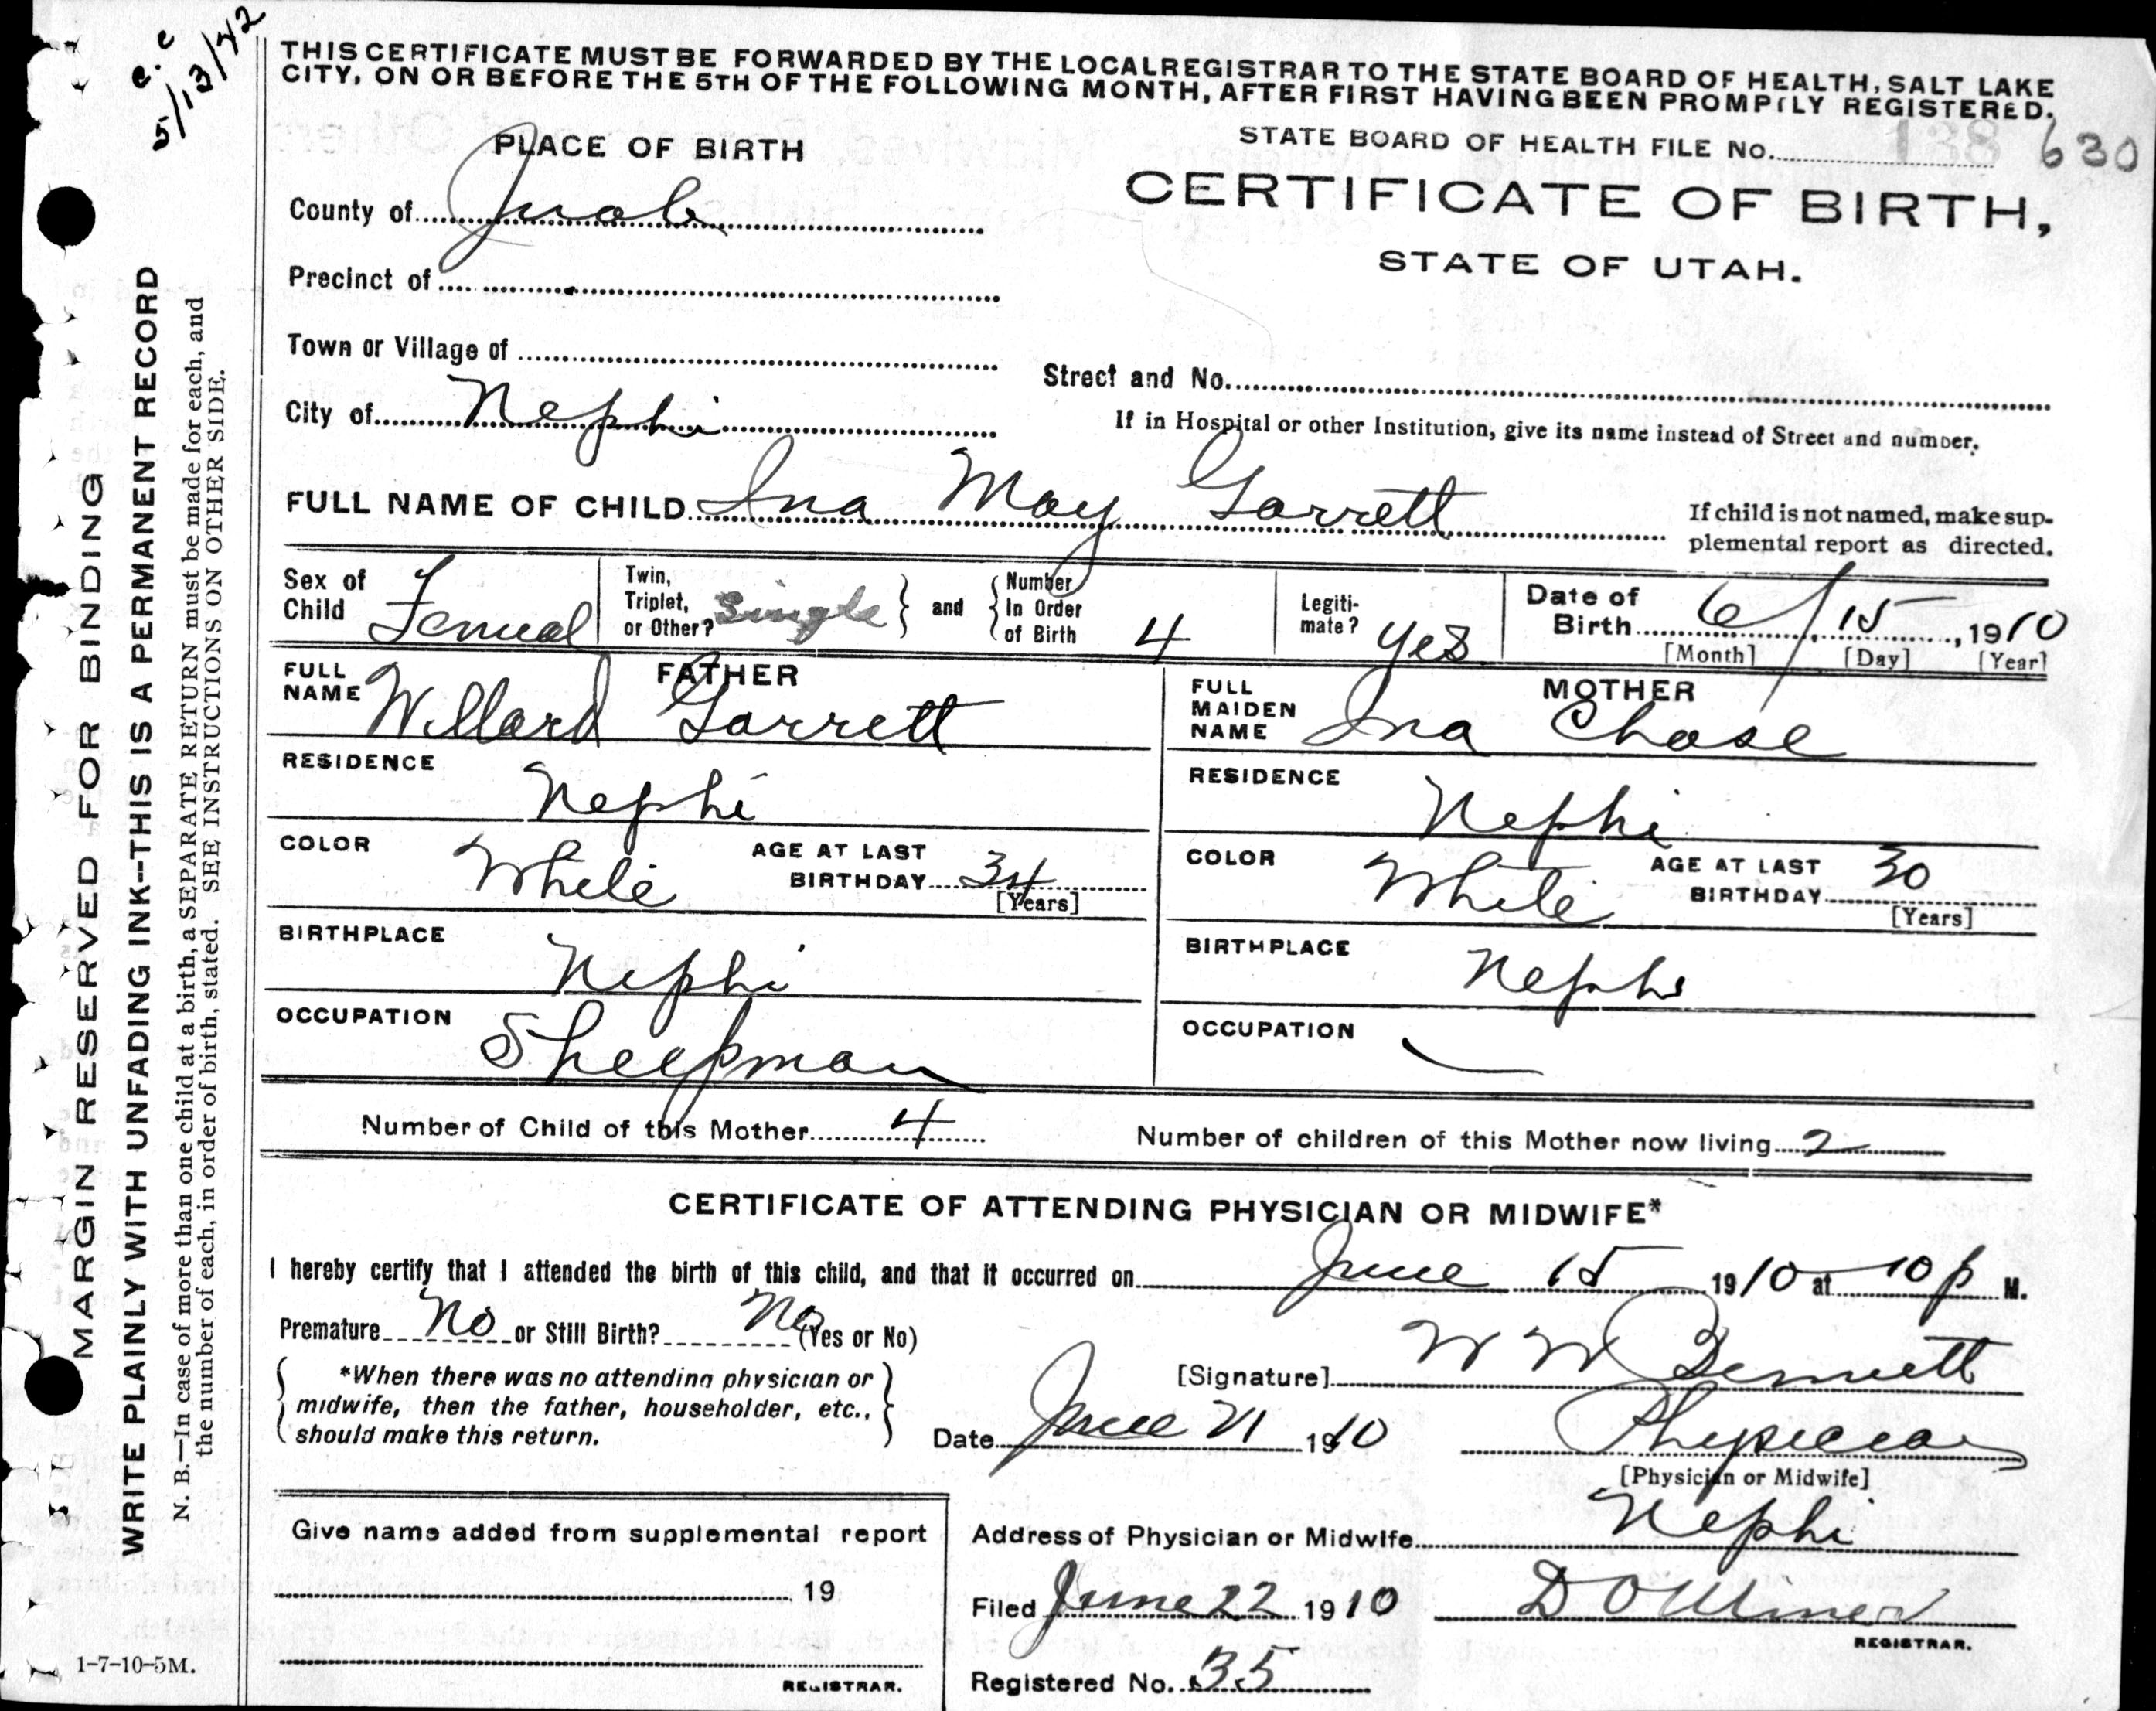 c.c
5/13/42
THIS CERTIFICATE MUST BE FORWARDED BY THE LOCAL REGISTRAR TO THE STATE BOARD OF HEALTH, SALT LAKE
CITY, ON OR BEFORE THE 5TH OF THE FOLLOWING MONTH, AFTER FIRST HAVING BEEN PROMPTLY REGISTERED.
PLACE OF BIRTH
STATE BOARD OF HEALTH FILE No. 138 630
County of Juab
CERTIFICATE OF BIRTH,
STATE OF UTAH.
Precinct of
Town or Village of
Street and No.
City of Nephi
If in Hospital or other Institution, give its name instead of Street and number.
FULL NAME OF CHILD Ina May Garrett
If child is not named, make sup-
plemental report as directed.
Sex of Child Femeal
Twin, Triplet, or Other? Single and Number In Order of Birth 4
Legiti-mate? Yes
Date of Birth 6 / 15, 1910
[Month] [Day] [Year]
FATHER
FULL NAME Willard Garrett
MOTHER
FULL MAIDEN NAME Ina Chase
RESIDENCE Nephi
RESIDENCE Nephi
COLOR White AGE AT LAST BIRTHDAY 34 [Years]
COLOR White AGE AT LAST BIRTHDAY 30 [Years]
BIRTHPLACE Nephi
BIRTHPLACE Nephi
OCCUPATION Sheepman
OCCUPATION —
Number of Child of this Mother 4 Number of children of this Mother now living 2
CERTIFICATE OF ATTENDING PHYSICIAN OR MIDWIFE*
I hereby certify that I attended the birth of this child, and that it occurred on June 15 1910 at 10 p M.
Premature No or Still Birth? No (Yes or No)
*When there was no attending physician or
midwife, then the father, householder, etc.,
should make this return.
[Signature] W W Bennett
Date June 21 1910 Physician
[Physician or Midwife]
Give name added from supplemental report
19
REGISTRAR.
Address of Physician or Midwife Nephi
Filed June 22 1910 D O Miner
REGISTRAR.
Registered No. 35
1-7-10-5M.
MARGIN RESERVED FOR BINDING
WRITE PLAINLY WITH UNFADING INK--THIS IS A PERMANENT RECORD
N. B.—In case of more than one child at a birth, a SEPARATE RETURN must be made for each, and
the number of each, in order of birth, stated. SEE INSTRUCTIONS ON OTHER SIDE.